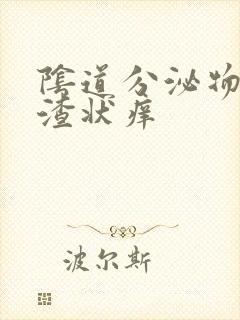 陰道分泌物
渣状痒
波尔斯